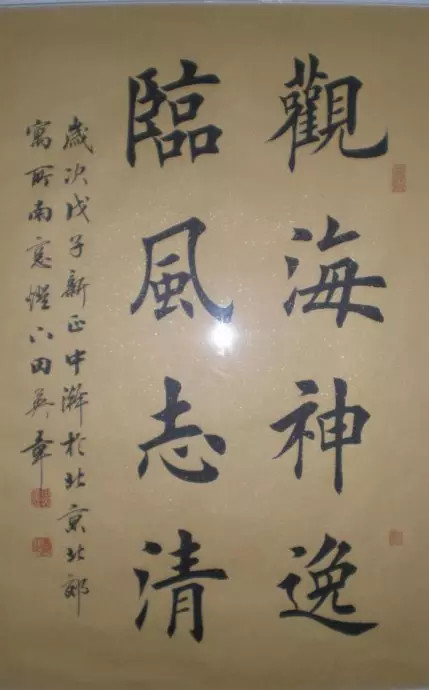 觀海神逸
臨風志清
歲次戊子新正中澣於北京北郊
寓所南窓燈下田英章